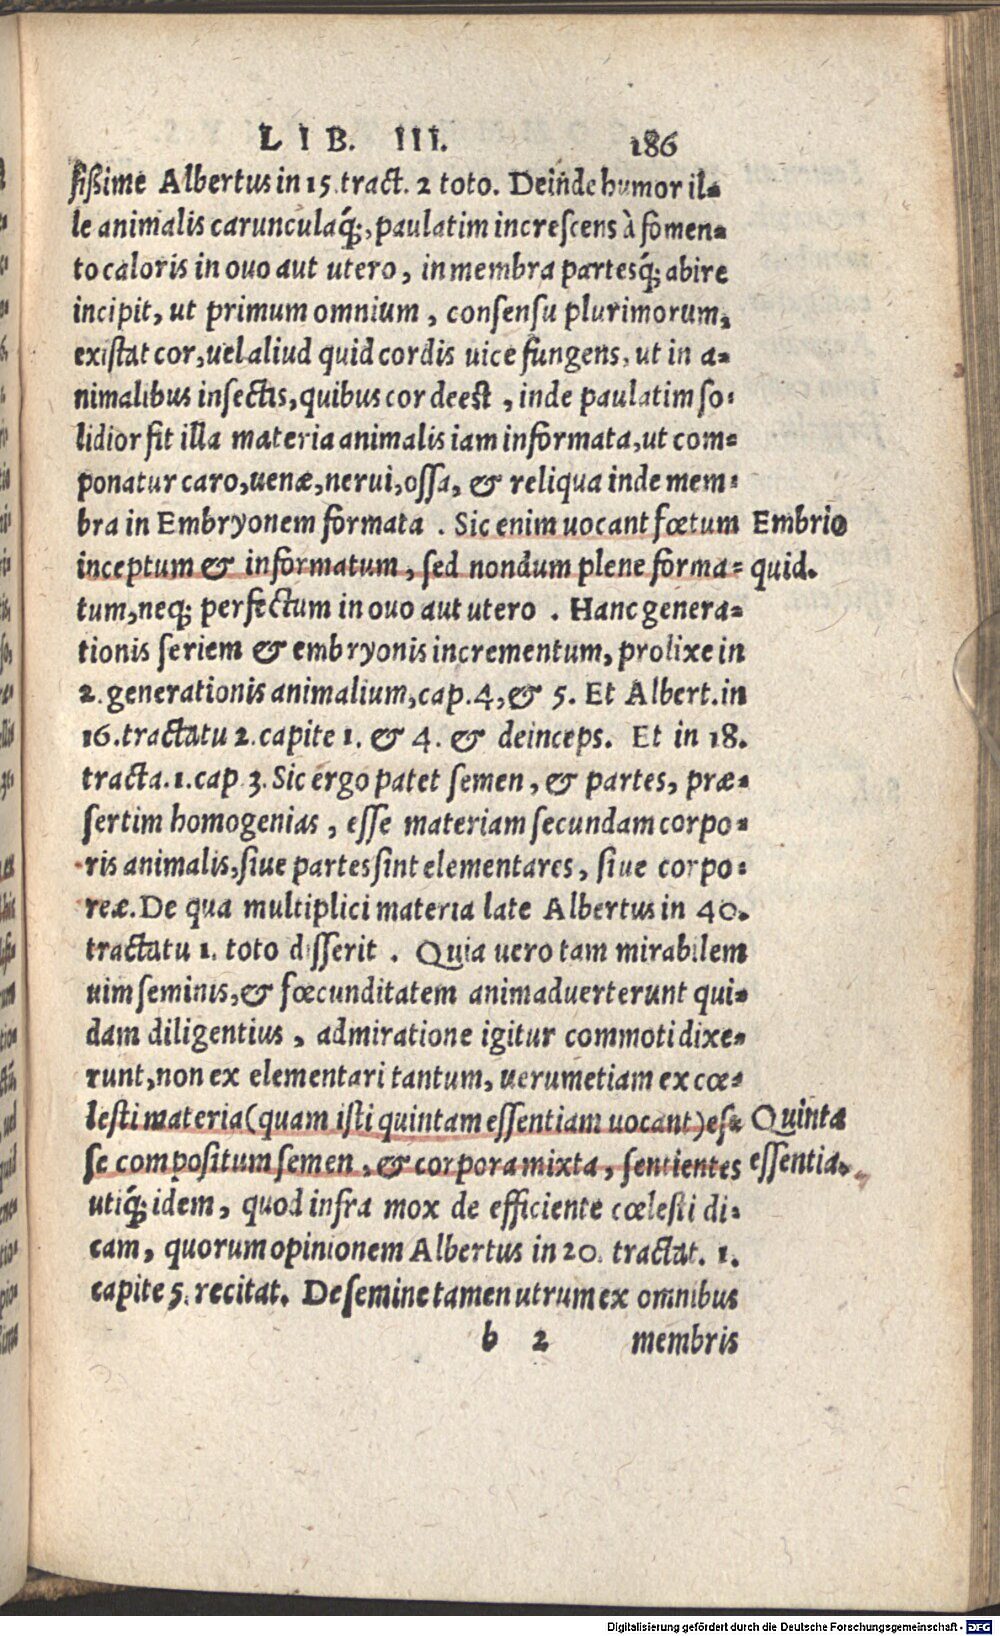 LIB. III. 186
ſißime Albertus in 15. tract. 2 toto. Deinde humor il-
le animalis carunculaq́;, paulatim increſcens à fomen-
to caloris in ouo aut utero, in membra partesq́; abire
incipit, ut primum omnium, conſenſu plurimorum,
exiſtat cor, uel aliud quid cordis uice fungens, ut in a-
nimalibus inſectis, quibus cor deest, inde paulatim ſo-
lidior fit illa materia animalis iam informata, ut com-
ponatur caro, uenæ, nerui, oſſa, & reliqua inde mem-
bra in Embryonem formata. Sic enim uocant fœtum Embrio
inceptum & informatum, ſed nondum plene forma- quid.
tum, neq; perfectum in ouo aut utero. Hanc genera-
tionis ſeriem & embryonis incrementum, prolixe in
2. generationis animalium, cap. 4, & 5. Et Albert. in
16. tractatu 2. capite 1. & 4. & deinceps. Et in 18.
tracta. 1. cap 3. Sic ergo patet ſemen, & partes, præ-
ſertim homogenias, eſſe materiam ſecundam corpo-
ris animalis, ſiue partes ſint elementares, ſiue corpo-
reæ. De qua multiplici materia late Albertus in 40.
tractatu 1. toto diſſerit. Quia uero tam mirabilem
uim ſeminis, & fœcunditatem animaduerterunt qui-
dam diligentius, admiratione igitur commoti dixe-
runt, non ex elementari tantum, uerumetiam ex cœ-
leſti materia (quam iſti quintam eſſentiam uocant) eſ- Quinta
ſe compoſitum ſemen, & corpora mixta, ſentientes eſſentia.
utiq́; idem, quod infra mox de efficiente cœleſti di-
cam, quorum opinionem Albertus in 20. tractat. 1.
capite 5. recitat. De ſemine tamen utrum ex omnibus
b 2 membris
Digitalisierung gefördert durch die Deutsche Forschungsgemeinschaft - DFG